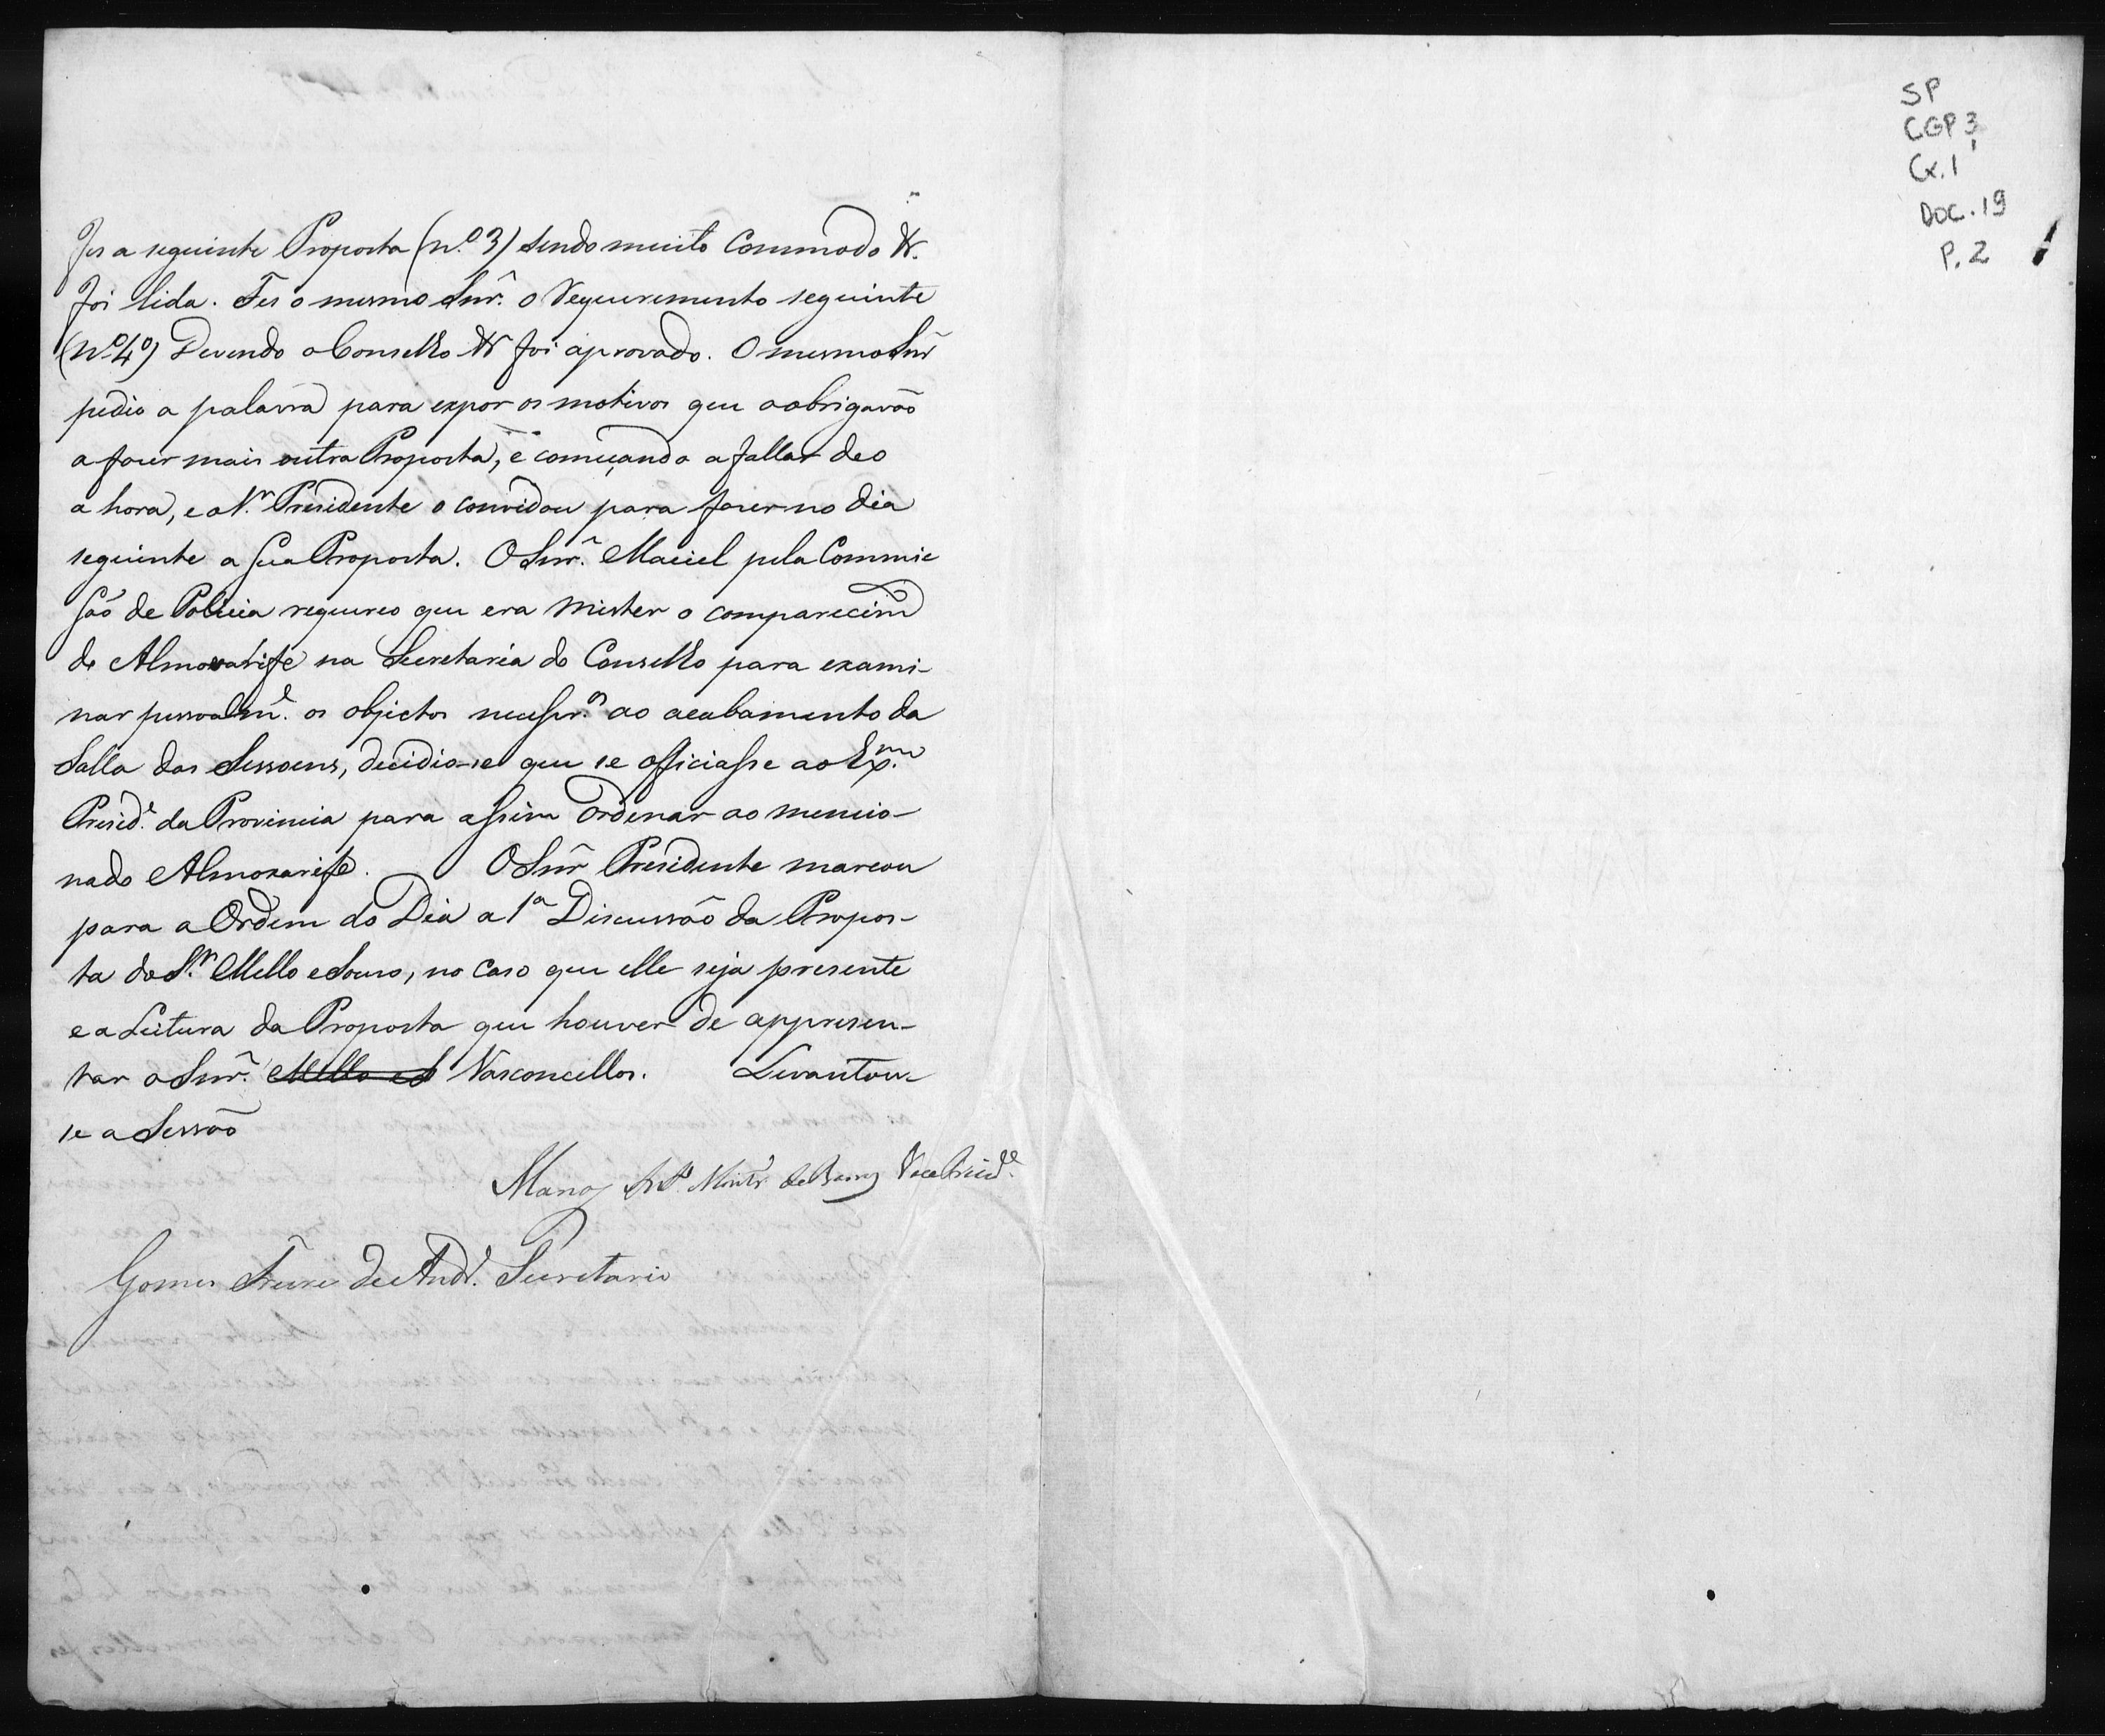 fes a seguinte Proposta (n.º 3) Sendo muito Commodo &.
foi lida. Fes o mesmo Snr̃. o Requerimento seguinte
(Nº 4º) Devendo o Conselho & foi aprovado. O mesmo Snr̃
pedio a palavra para expor os motivos que o obrigavão
a fazer mais outra Proposta, e começando a fallar deo
a hora, e o Sr. Presidente o convidou para fazer no dia
seguinte a Sua Proposta. O Snr̃. Maciel pela Commis
são de Policia requereo que era mister o comparecim̃
do Almoxarife na Secretaria do Conselho para exami-
nar pessoalm.e os objectos necessr.os ao acabamento da
Salla das Sessoens, decidio-se que se officiasse ao Exmo.
Presid.e da Provincia para assim Ordenar ao mencio-
nado Almoxarife. O Snr̃ Presidente marcou
para a Ordem do Dia a 1ª Discussão da Propos-
ta do Sr. Mello e Souza, no caso que elle seja presente
e a Leitura da Proposta que houver de appresen-
tar o Snr̃. Mello e S Vasconcellos. Levantou-
se a Sessão
Mano͡el de Barros Vice Presid.e
Gomes Freire de Andr.e Secretario
SP
CGP 3,
Cx. 1
DOC. 19
P. 2